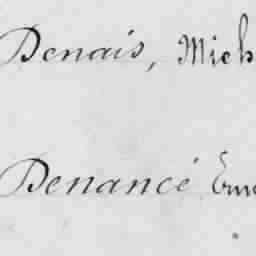 Denais, Mich
Denancé Ern